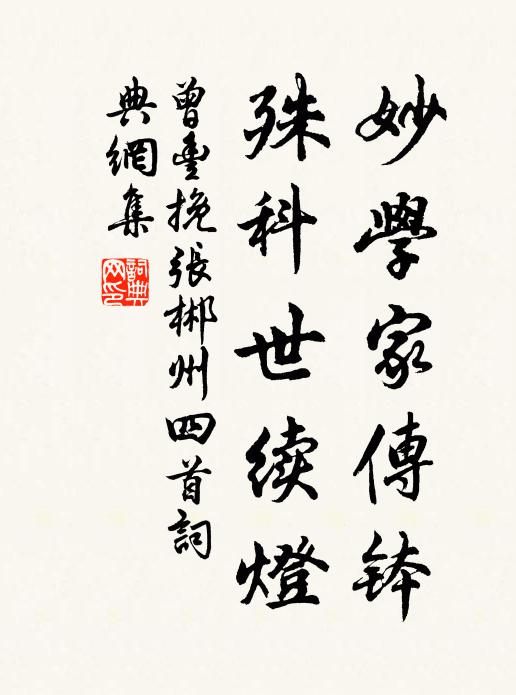 妙學家傳钵
殊科世续燈
曾豊挽張郴州四首詞
典網集
詞典
网印